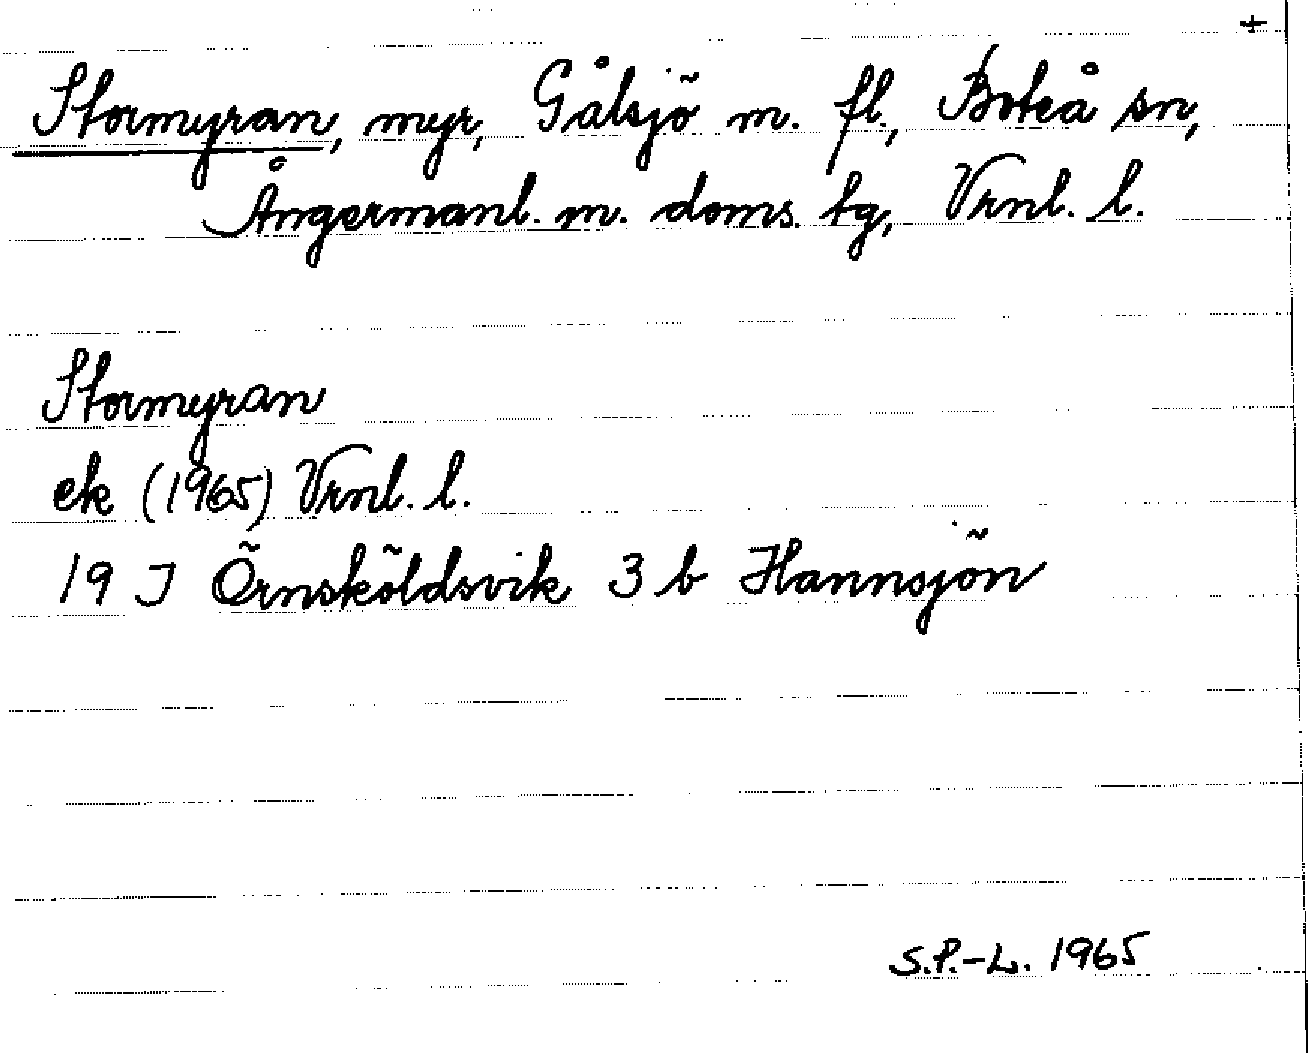 +
Stormyran, myr, Gålsjö m. fl., Boteå sn,
Ångermanl. m. doms. tg, Vrnl. l.
Stormyran
ek (1965) Vrnl. l.
19 J Örnsköldsvik 3 b Hannsjön
S.P.-L. 1965